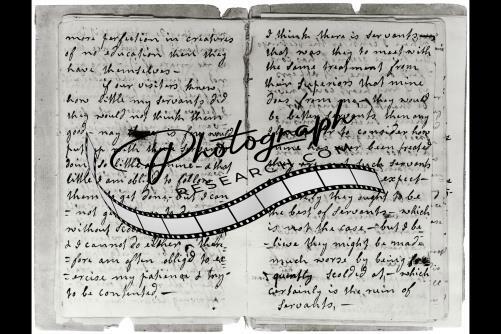 more perfection in creatures
of no education then they
have themselves.
If our visiters knew
how little my servants did
they would not think them
good
so little
little I am able to
them to get done, but I can
not
without scold
& I cannot do either, then-
-fore am often oblig'd to ex-
-ercise my patience & try
to be contented
I think there is servants
that was they to meet with
the same treatment from
their Superiors that mine
does from me, they would
be better servants then any
to consider how
mine has ever been treated
such servants
expect-
they ought to be
the best of servants - which
is not the case, - but I be-
-lieve they might be made
much worse by being fre-
quently scolded at, - which
certainly is the ruin of
servants, -
Photograph
RESEARCH.COM